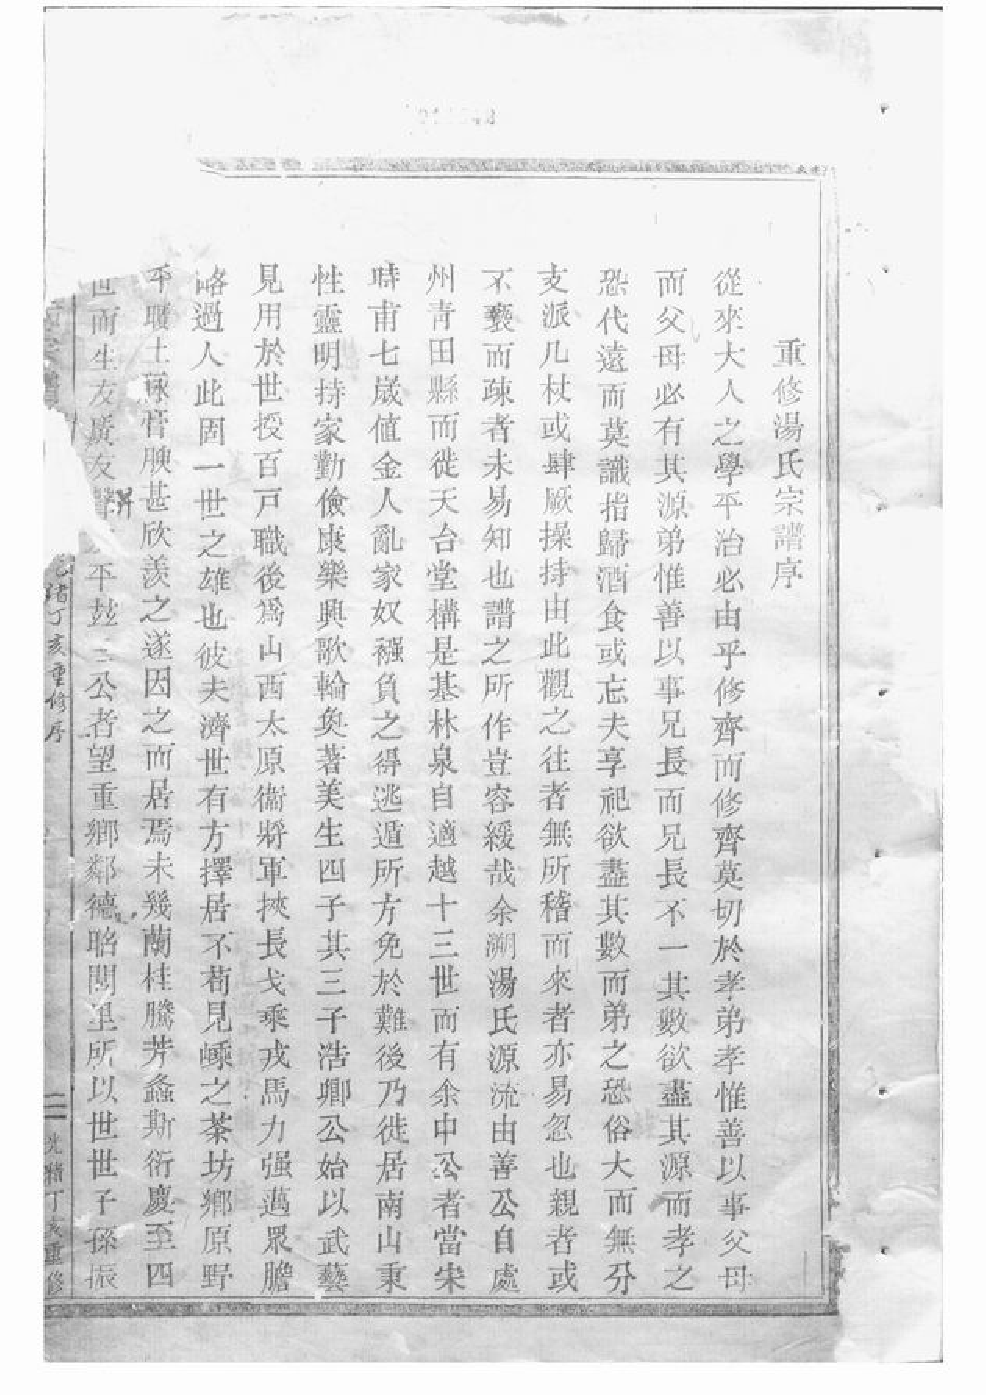 重修湯氏宗譜序
從來大人之學平治必由乎修齊而修齊莫切於孝弟孝惟善以事父母
而父母必有其源弟惟善以事兄長而兄長不一其數欲盡其源而孝之
恐代遠而莫識指歸酒食或忘夫享祀欲盡其數而弟之恐俗大而無分
支派几杖或肆厥操持由此觀之往者無所稽而來者亦易忽也親者或
不褻而疎者未易知也譜之所作豈容緩哉余溯湯氏源流由善公自處
州青田縣而徙天台堂構是基林泉自適越十三世而有余中公者當宋
時甫七歲值金人亂家奴襁負之得逃遁所方免於難後乃徙居南山秉
性靈明持家勤儉康樂興歌輪奐著美生四子其三子浩卿公始以武藝
見用於世授百戸職後爲山西太原衞將軍挾長戈乘戎馬力强邁眾膽
略過人此固一世之雄也彼夫濟世有方擇居不苟見嵊之茶坊鄉原野
平曠土脉膏腴甚欣羨之遂因之而居焉未幾蘭桂騰芳螽斯衍慶至四
世而生友廣友聲 昇平 三公者望重鄉鄰德昭閭里所以世世子孫振
緒丁亥重修序
二 光緒丁亥重修